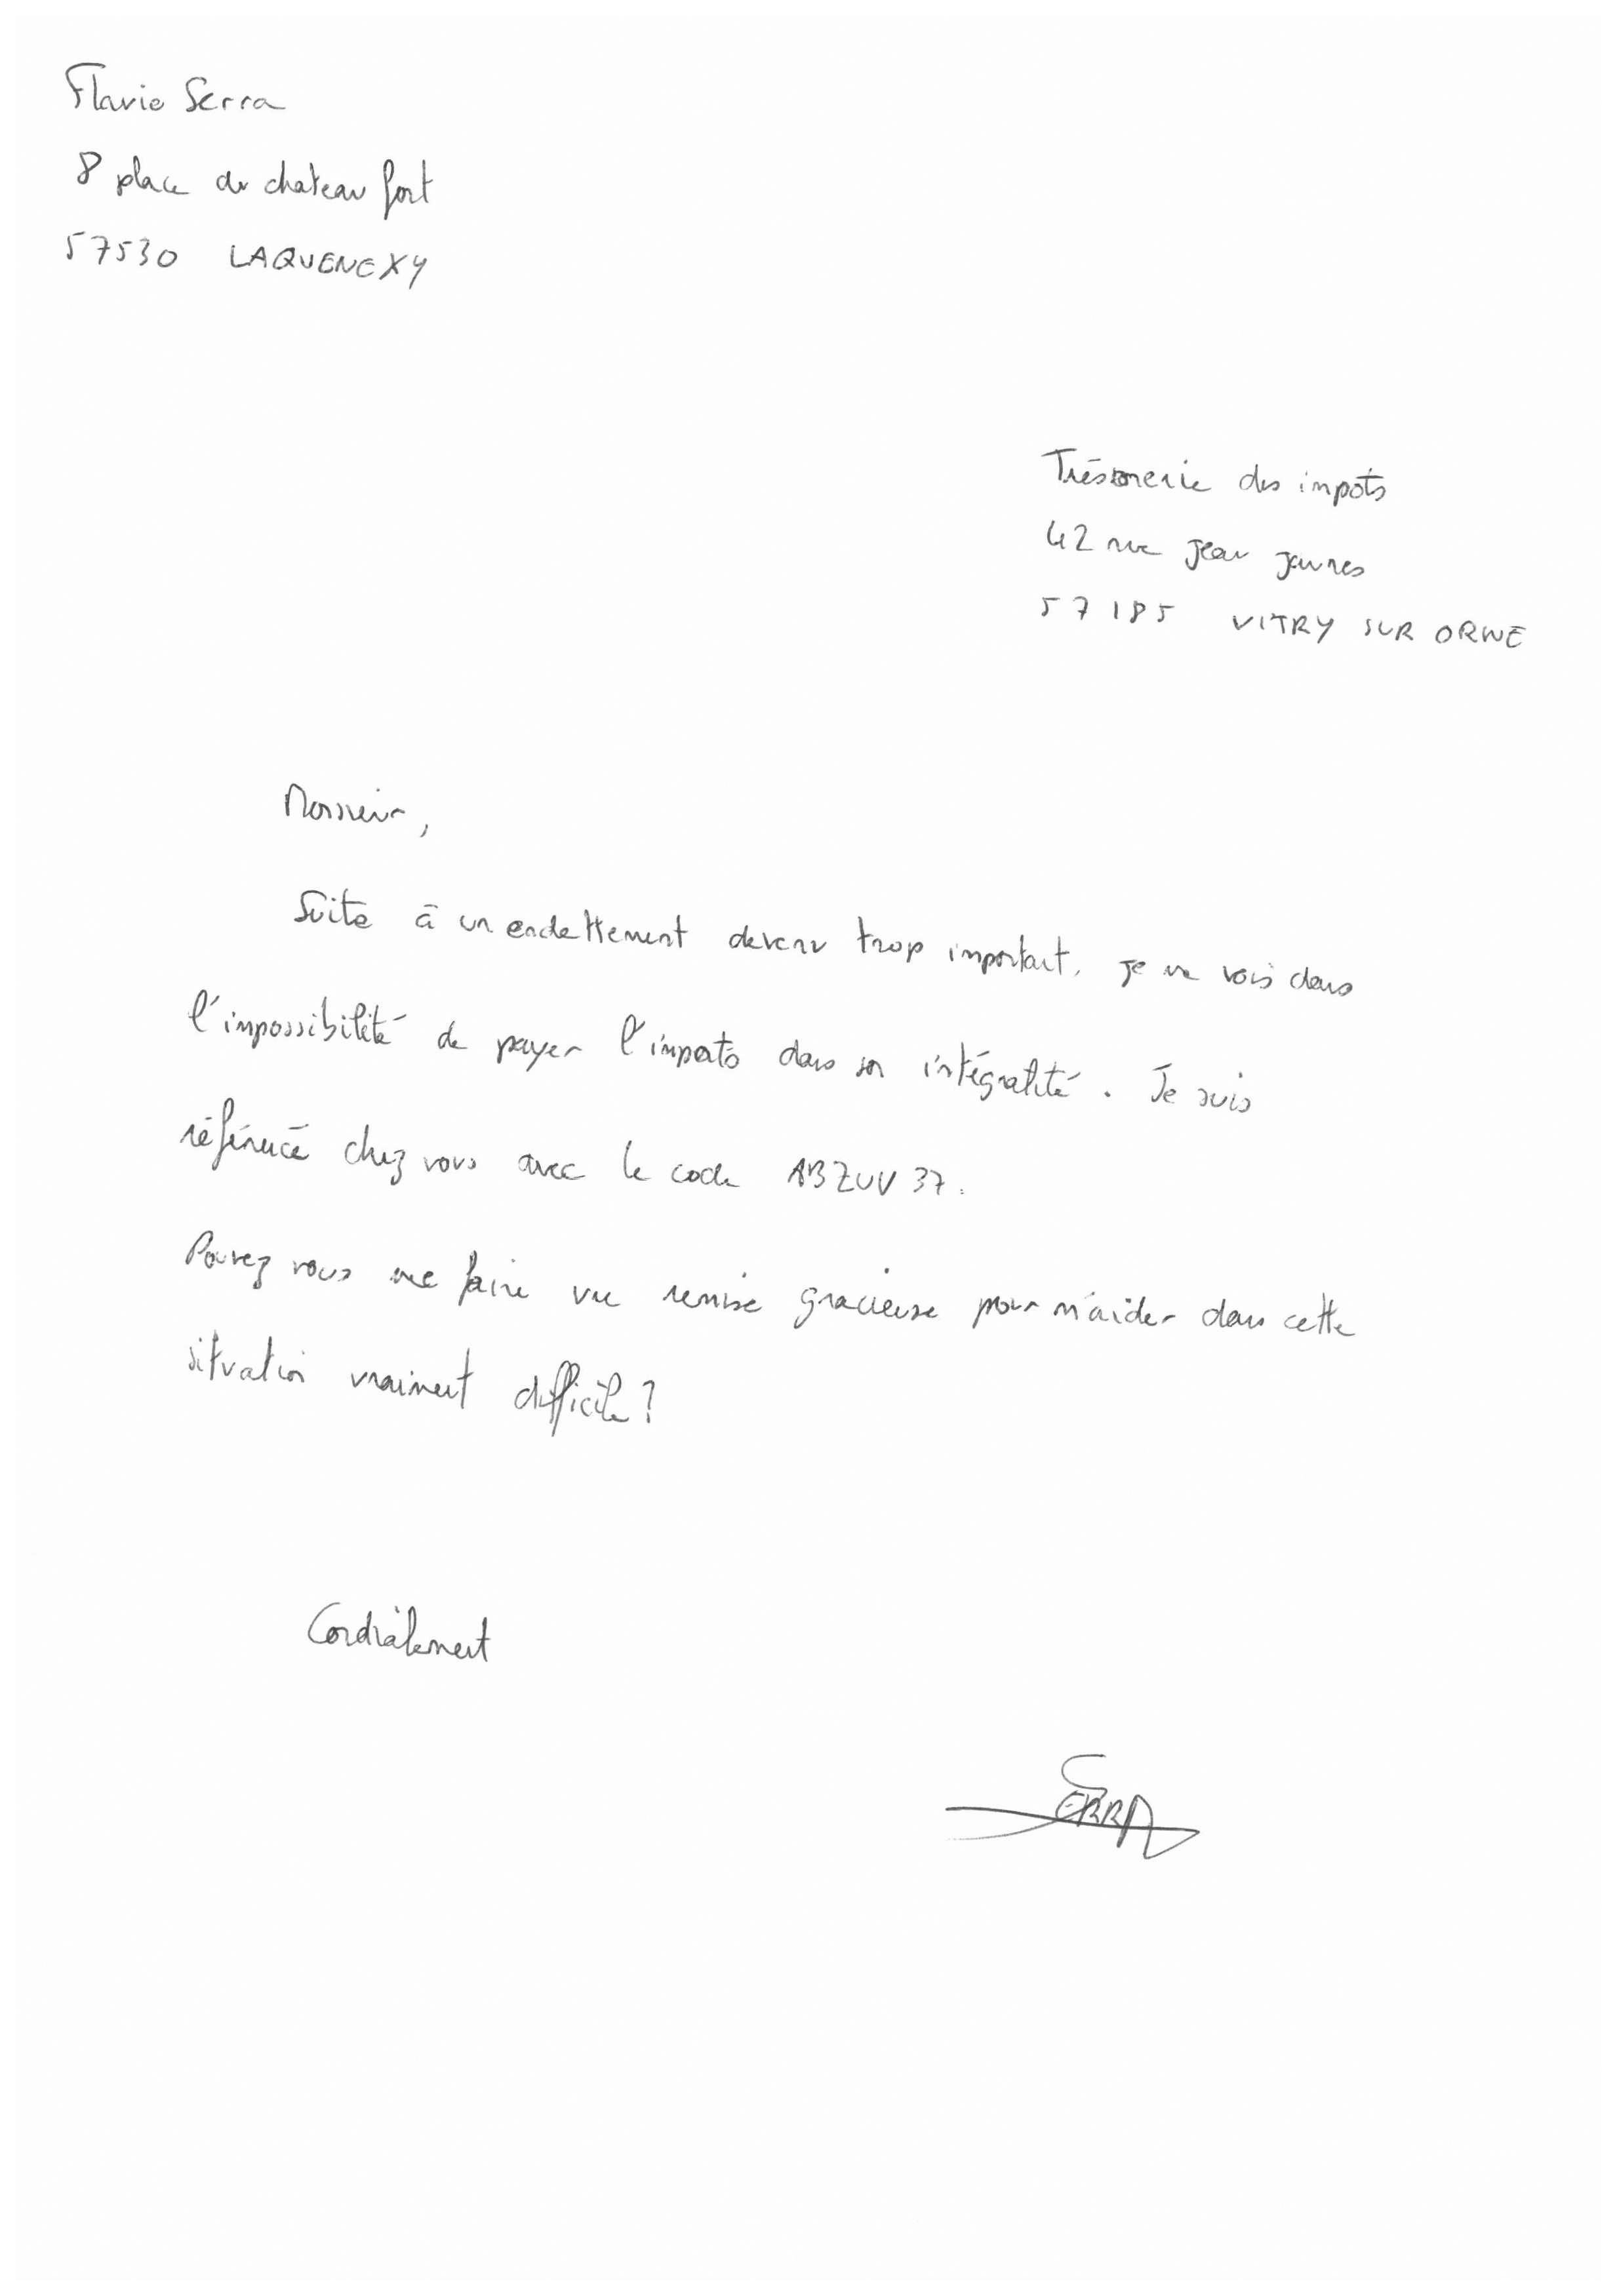 Flavie Serra
8 place du chateau fort
57530 LAQUENEXY
Trésorerie des impots
42 rue jean jaures
57185 VITRY SUR ORNE
Monsieur,
Suite à un endettement devenu trop important, je me vois dans
l'impossibilité de payer l'impots dans son intégralité. Je suis
référencé chez vous avec le code ABZUV37.
Pouvez vous me faire une remise gracieuse pour m'aider dans cette
situation vraiment difficile ?
Cordialement
SERRA